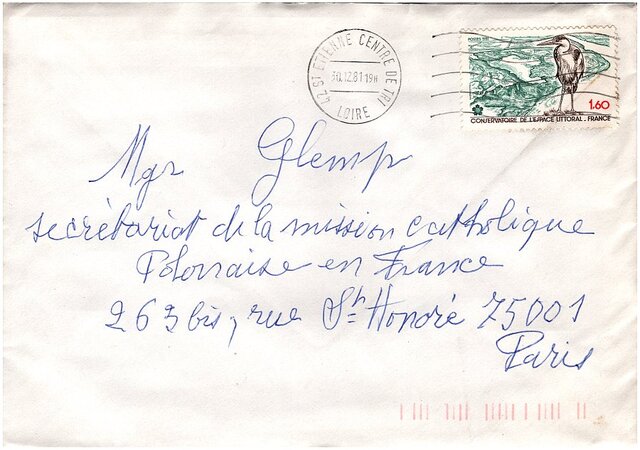 42 ST ETIENNE CENTRE DE TRI
30.12.81 19H
LOIRE
POSTES 1981
1.60
CONSERVATOIRE DE L'ESPACE LITTORAL. FRANCE
Mgr Glemp
secrétariat de la mission catholique
Polonaise en France
263 bis, rue St Honoré 75001
Paris